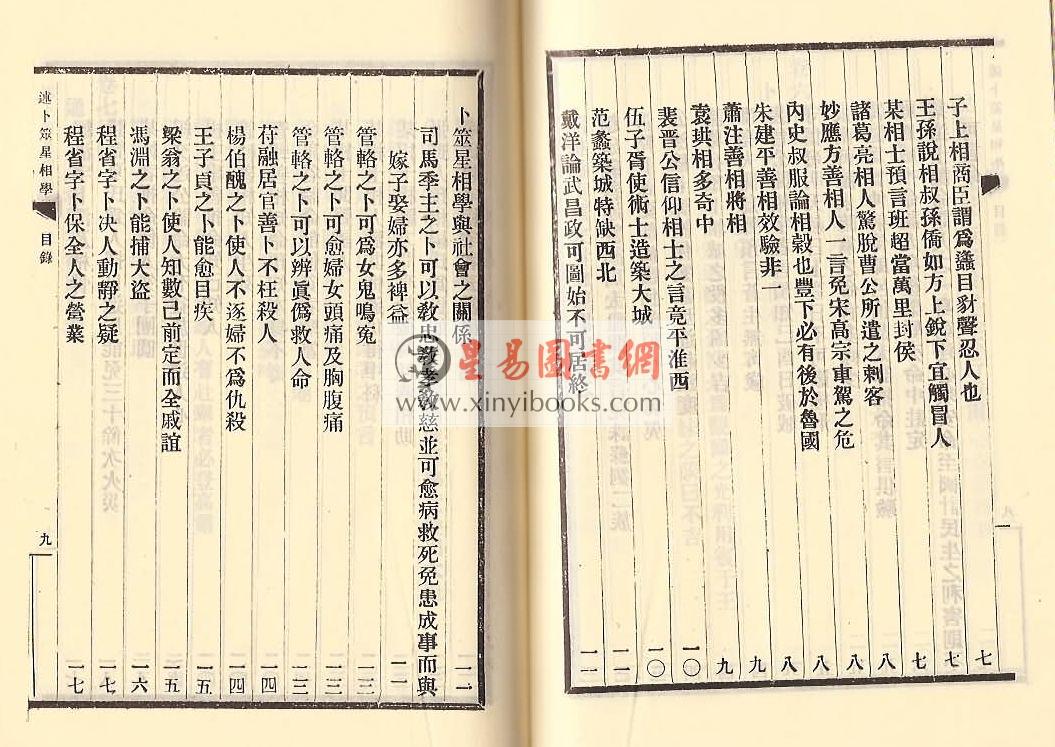 子上相商臣謂爲蠭目豺聲忍人也 七
王孫說相叔孫僑如方上銳下宜觸冒人 七
某相士預言班超當萬里封侯 七
諸葛亮相人驚脫曹公所遣之刺客 八
妙應方善相人一言免宋高宗車駕之危 八
內史叔服論相穀也豐下必有後於魯國 八
朱建平善相效驗非一 九
蕭注善相將相 九
袁珙相多奇中 一〇
裴晉公信仰相士之言竟平淮西 一〇
伍子胥使術士造築大城 一一
范蠡築城特缺西北 一一
戴洋論武昌政可圖始不可居終 一一
八
卜筮星相學與社會之關係 一二
司馬季主之卜可以敎忠敎孝敎慈並可愈病救死免患成事而與
嫁子娶婦亦多裨益 一二
管輅之卜可爲女鬼鳴寃 一三
管輅之卜可愈婦女頭痛及胸腹痛 一三
管輅之卜可以辨眞僞救人命 一三
苻融居官善卜不枉殺人 一四
楊伯醜之卜使人不逐婦不爲仇殺 一四
王子貞之卜能愈目疾 一五
梁翁之卜使人知數已前定而全戚誼 一五
馮淵之卜能捕大盜 一六
程省字卜决人動靜之疑 一七
程省字卜保全人之營業 一七
述卜筮星相學 目錄 九
星易圖書網
www.xinyibooks.com